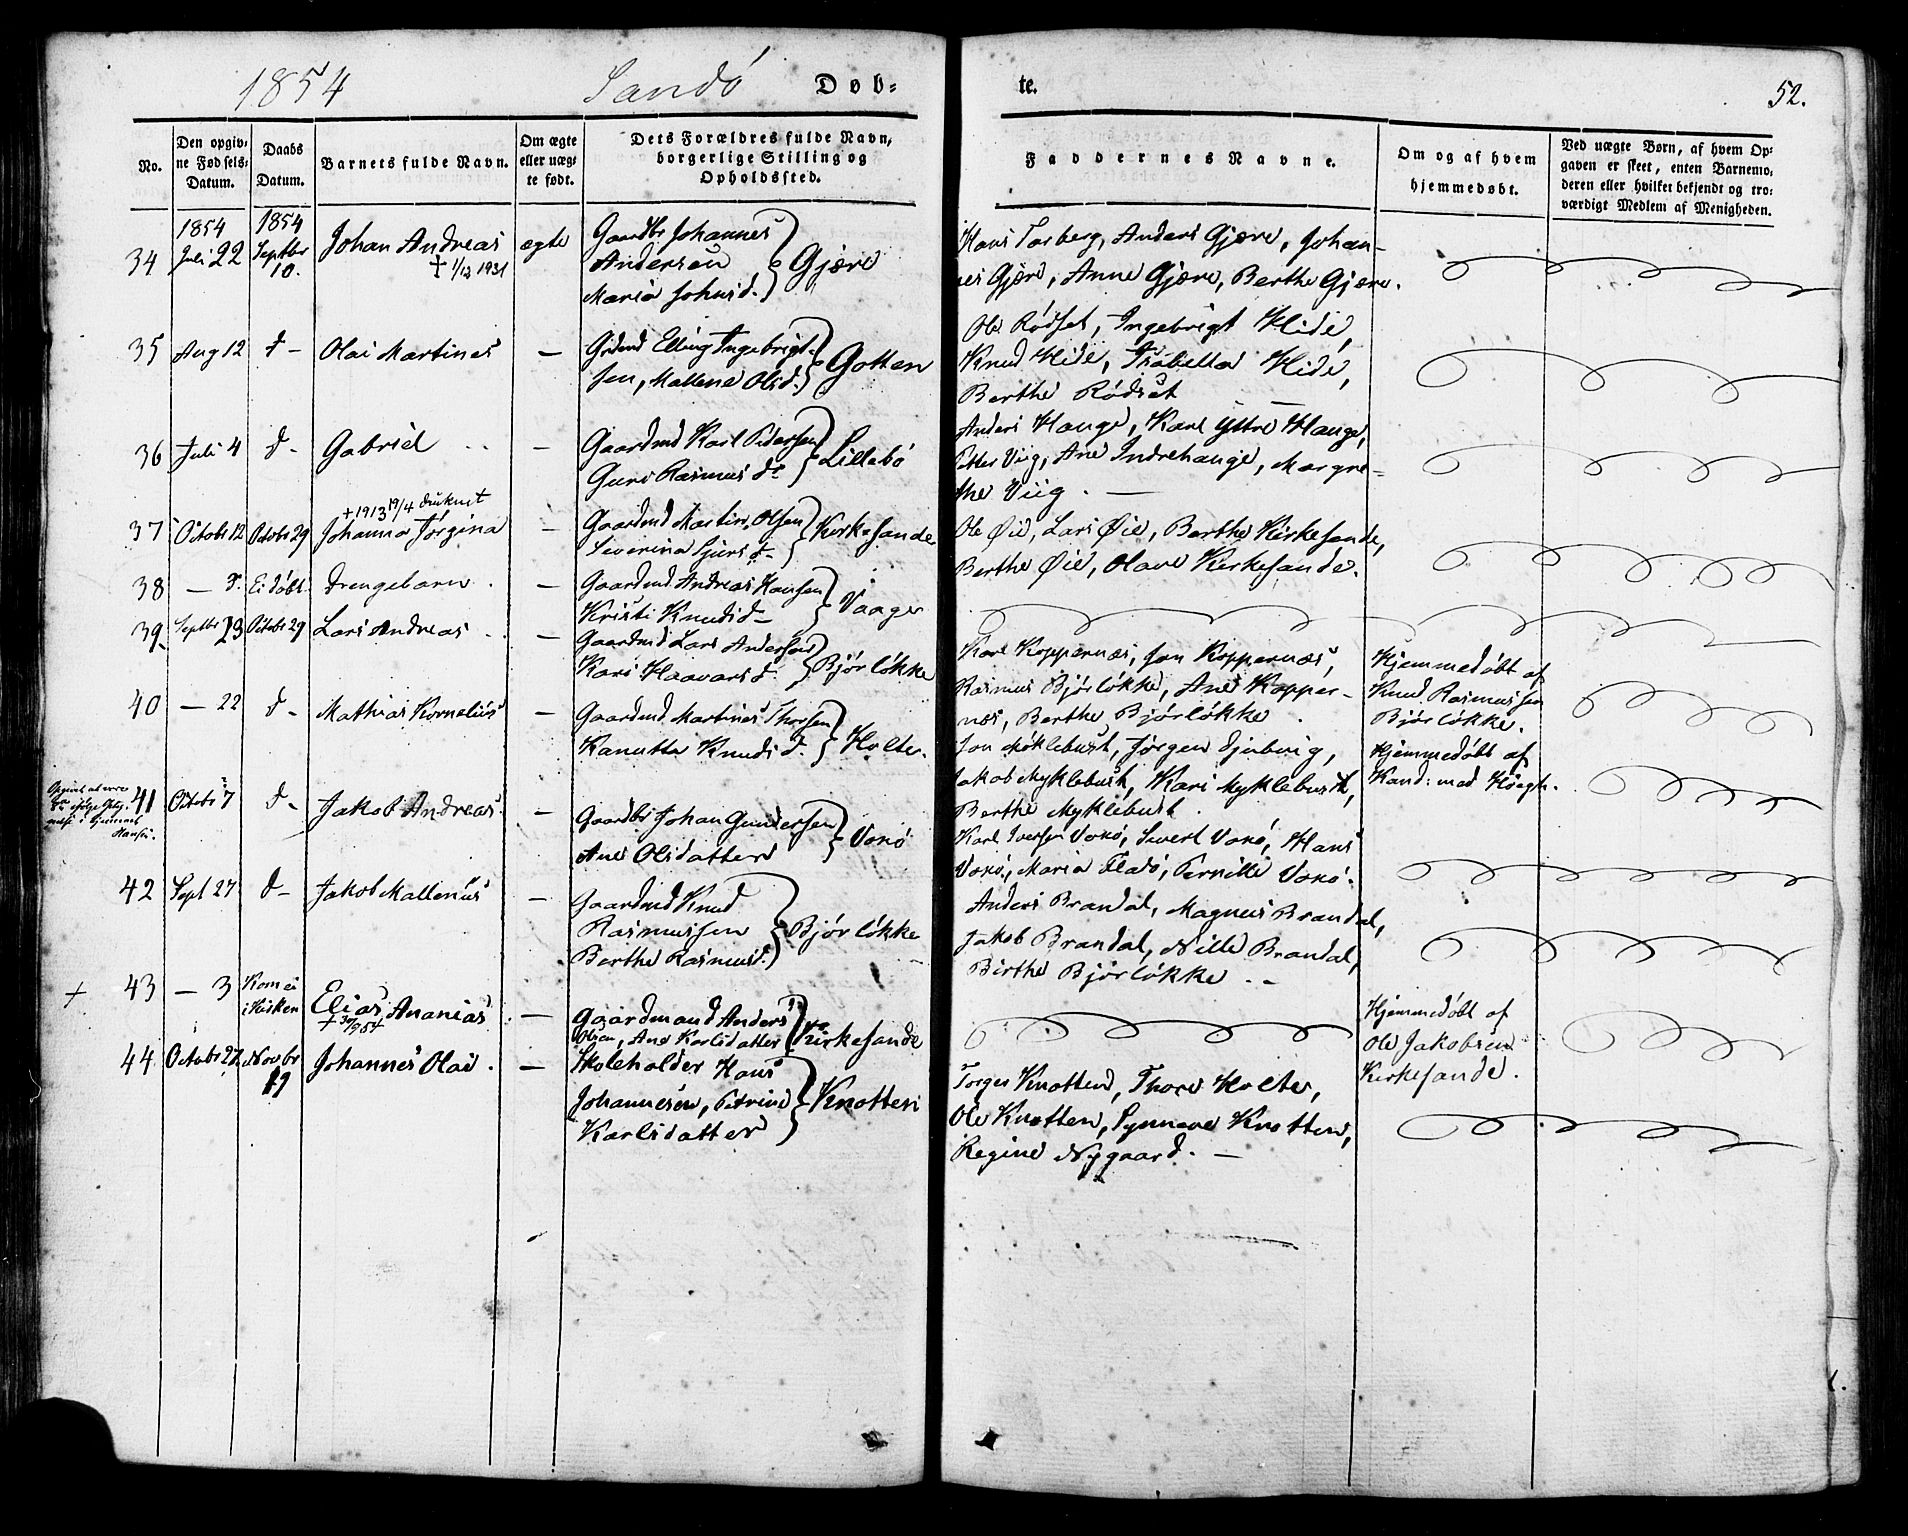 1854 Sandö Døb-
te. 52.
No.
Den opgiv-
ne Fødsels-
Datum.
Daabs
Datum.
Barnets fulde Navn.
Om ægte
eller uæg-
te født.
Dets Forældres fulde Navn,
borgerlige Stilling og
Opholdssted.
Faddernes Navne.
Om og af hvem
hjemmedøbt.
Ved uægte Børn, af hvem Op-
gaven er skeet, enten Barnemo-
deren eller hvilket bekjendt og tro-
værdigt Medlem af Menigheden.
34 1854 Juli 22 1854 Septbr 10. Johan Andreas ægte
† 1/12 1931
Gaardbr Johannes
Andersen
Maria Johnsd. Gjære
Hans Torberg, Anders Gjære, Johan-
nes Gjære, Anne Gjære, Berthe Gjære.
35 Aug 12 d- Olai Martines —
Grdmd Elling Ingebrigt-
sen, Mallena Olsd. Gotten
Ole Rødset, Ingebrigt Hide,
Knud Hide, Isabella Hide,
Berthe Rødset
36 Juli 4 d- Gabriel —
Gaardmd Karl Pedersen
Guro Rasmusdr Lillebö
Anders Hauge, Karl Yttre Hauge,
Petter Viig, Ane Indrehauge, Margre-
the Viig. —
† 1913 19/4 druknet
37 Octobr 12 Octobr 29 Johanna Jørgina —
Gaardmd Martin Olsen
Severina Sjursd- Kirkesande
Ole Øie, Lars Øie, Berthe Kirkesande,
Berthe Øie, Olave Kirkesande.
38 — d. Ei döbt. Drengebarn. —
Gaardmd. Andreas Hansen
Kristi Knudsd- Vaage
39. Septbr 23 Octobr 29 Lars Andreas —
Gaardmd Lars Andersen
Kari Haavarsd. Bjørløkke
Karl Koppernæs, Jon Koppernæs,
Rasmus Bjørløkke, Ane Kopper-
næs, Berthe Bjørløkke.
Hjemmedöbt af
Knud Rasmussen
Bjørløkke.
40 — 22 d- Mathias Kornelius —
Gaardmd. Martines Thorsen
Kanutta Knudsd. Holte.
Jon Møklebust, Jørgen Djubvig,
Jakob Myklebust, Kari Myklebust,
Berthe Myklebust.
Hjemmedöbt af
Kand: med Høegh.
41 Octobr 7 d- Jakob Andreas. —
Gaardbr Johan Gundersen
Ane Olsdatter Voxö
Karl Iversen Voxö, Sivert Voxö, Hans
Voxö, Maria Fladö, Pernille Voxö.
42 Sept 27 d- Jakob Mallenius —
Gaardmd Knud
Rasmussen
Berthe Rasmusd. Bjørløkke
Anders Brandal, Magnus Brandal,
Jakob Brandal, Nille Brandal,
Birthe Bjørløkke. -
+ 43 — 3 Kom ei i Kirken Elias Ananias. —
Gaardmand Anders
Olsen, Ane Karlsdatter Kirkesande
Hjemmedöbt af
Ole Jakobsen
Kirkesande.
44 Novbr 19 Johannes Olai. —
Skoleholder Hans
Johannesen, Petrine
Karlsdatter Knotten
Torger Knotten, Thore Holte,
Ole Knotten, Synneve Knotten,
Regine Nygaard. —